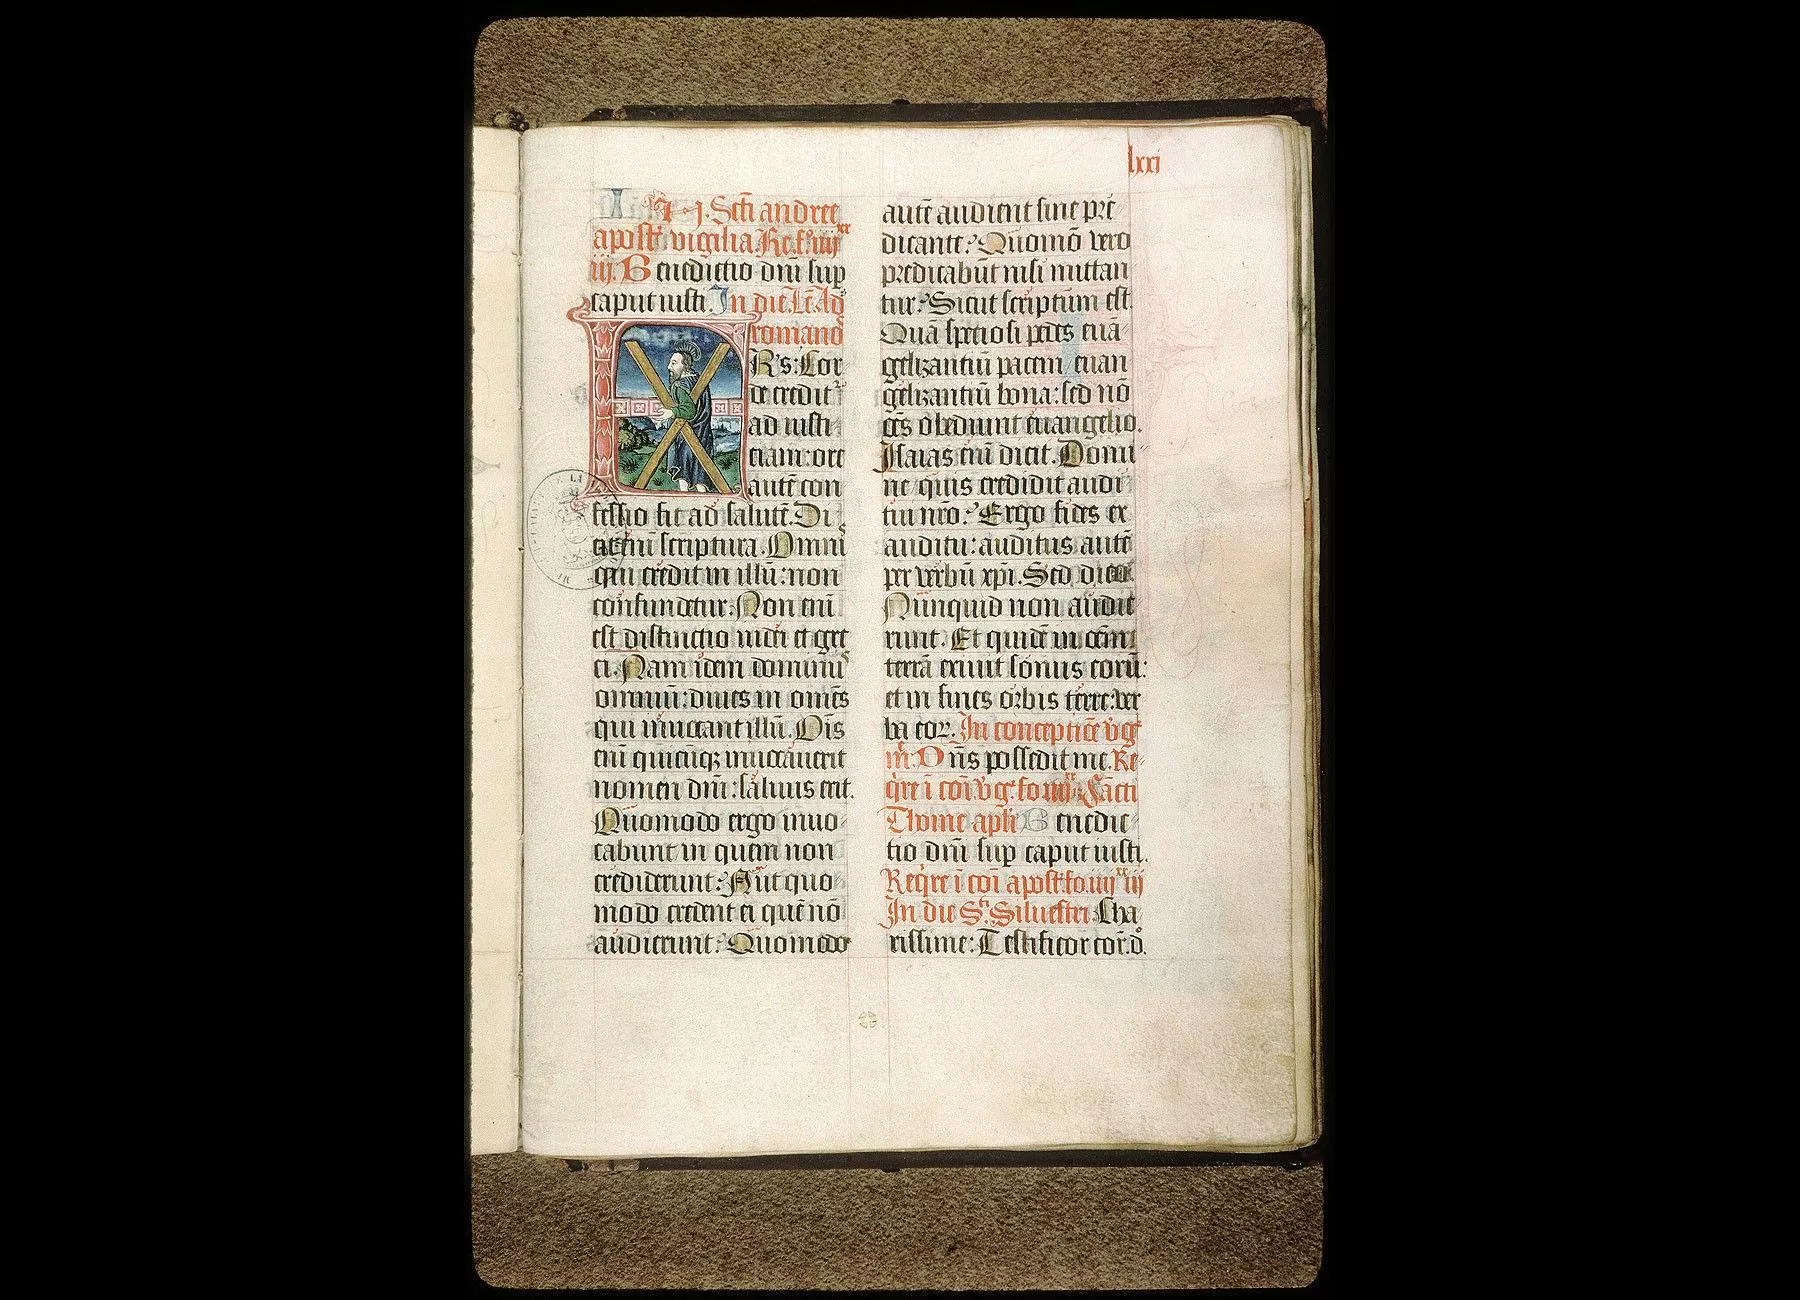 lxxi
Scti andree
apostͦ vigilia. Re. fͦ. iiijˣˣ
iij. Benedictio dñi sup
caput iusti. In die. Lc̄. Ad
romanos
Rs: Cor
de creditʳ
ad iusti
ciam: ore
autē con
fessio fit ad salutē. Di
cit eni scriptura. Omnis
qui credit in illū: non
confundetur. Non enī
est distinctio iudei et gre
ci. Nam idem dominus
omniū: diues in omēs
qui inuocant illū. Oīs
enī quicūqꝫ inuocauerit
nomen dñi: saluus erit.
Quomodo ergo inuo-
cabunt in quem non
crediderunt? Aut quo
modo credent ei quē nō
audierunt? Quomodo
autē audient sine pre
dicante? Quomō vero
predicabūt nisi mittan
tur? Sicut scriptum est.
Quā speciosi pedes euā-
gelizantiū pacem euan
gelizantiū bona: sed nō
oēs obediunt euangelio.
Isaias enī dicit. Domi-
ne quis credidit audi
tui nrō? Ergo fides ex
auditu: auditus autē
per verbū xp̄i. Sed dico
Nunquid non audie
runt. Et quidē in oēm
terrā exiuit sonus eorū:
et in fines orbis terre: ver
ba eoꝝ. In conceptiōe v̓gͥs
m̄. Dn̄s possedit me. Re-
qͥre ī coī. v̓g. fo. iiijˣˣ. Sācti
Thome apl̓i Benedic-
tio dñi sup caput iusti.
Reqͥre ī coī apostͦ. fo. iiijˣˣ iij
In die Sͭⁱ Siluestri. Cha-
rissime: Testificor cor. d̊.